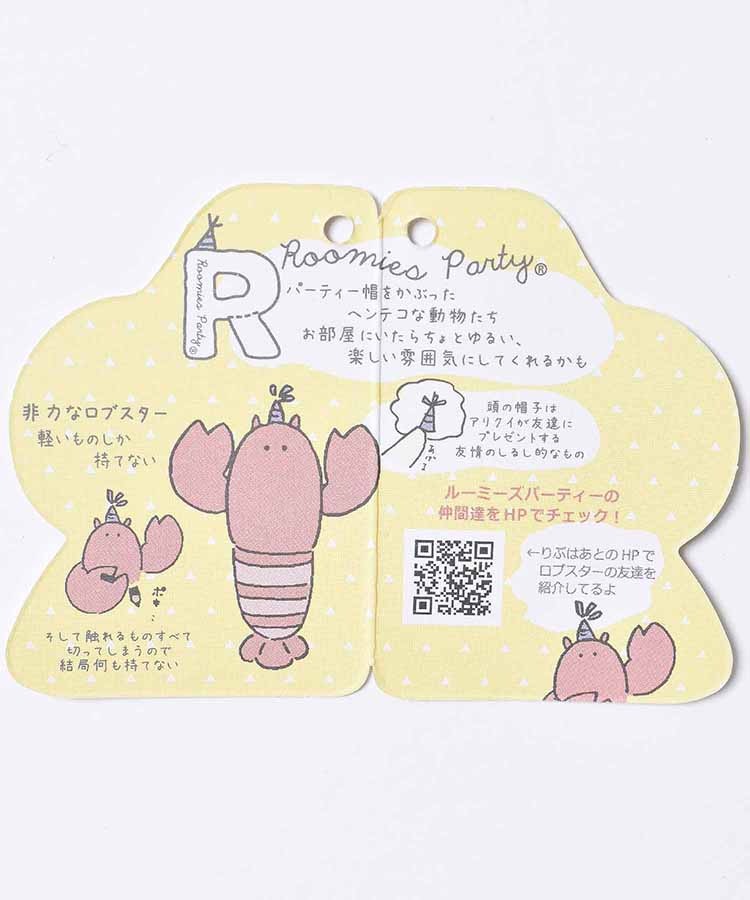 Roomies Party®
Roomies Party®
パーティー帽をかぶった
ヘンテコな動物たち
お部屋にいたらちょとゆるい、
楽しい雰囲気にしてくれるかも
非力なロブスター
軽いものしか
持てない
ポキ…
そして触れるものすべて
切ってしまうので
結局何も持てない
頭の帽子は
アリクイが友達に
プレゼントする
友情のしるし的なもの
ルーミーズパーティーの
仲間達をHPでチェック！
←りぶはあとのHPで
ロブスターの友達を
紹介してるよ